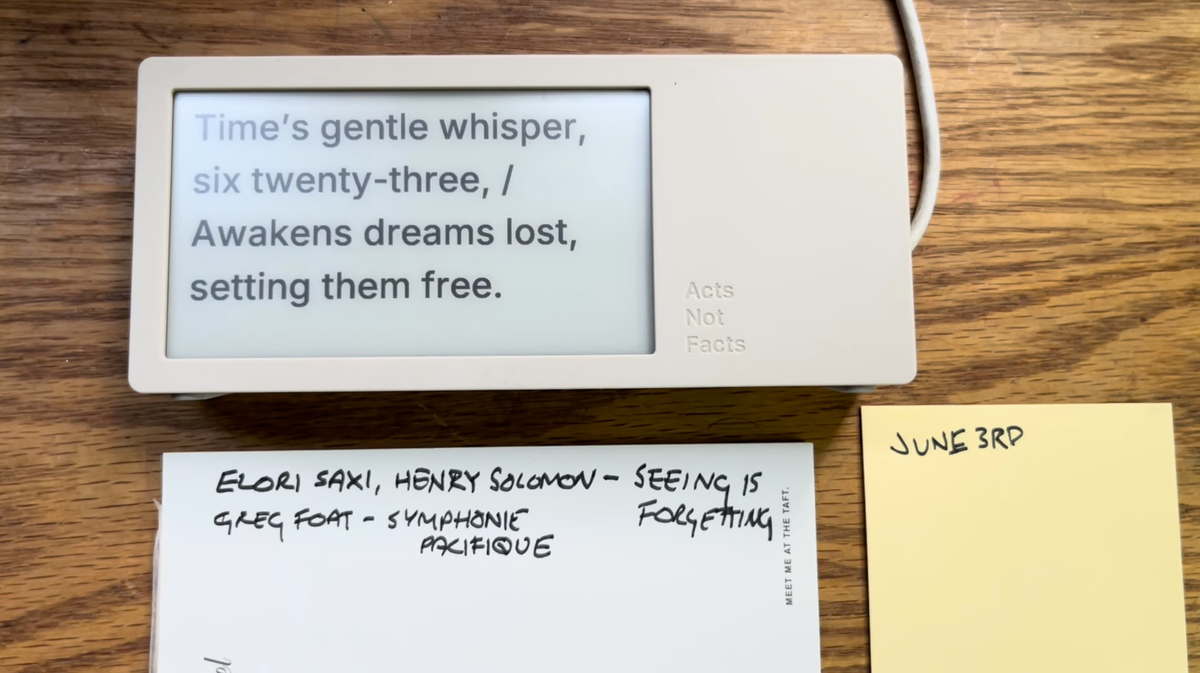 Time's gentle whisper,
six twenty-three, /
Awakens dreams lost,
setting them free.
Acts
Not
Facts
ELORI SAXI, HENRY SOLOMON – SEEING IS
FORGETTING
GREG FOAT – SYMPHONIE
PACIFIQUE
MEET ME AT THE TAFT.
JUNE 3RD